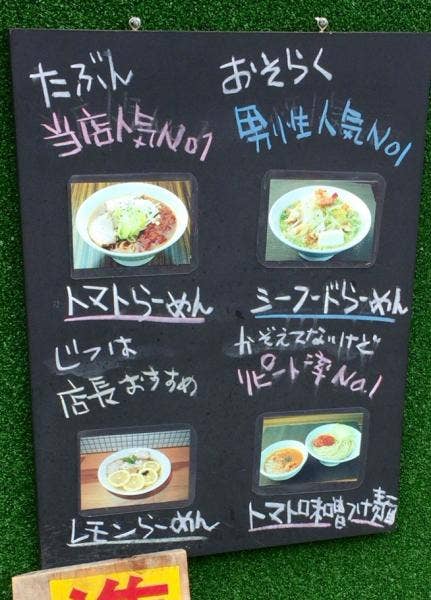 たぶん
当店人気No1
トマトらーめん
おそらく
男性人気No1
シーフードらーめん
じつは
店長おすすめ
レモンらーめん
かぞえてないけど
リピート率No.1
トマト味噌つけ麺